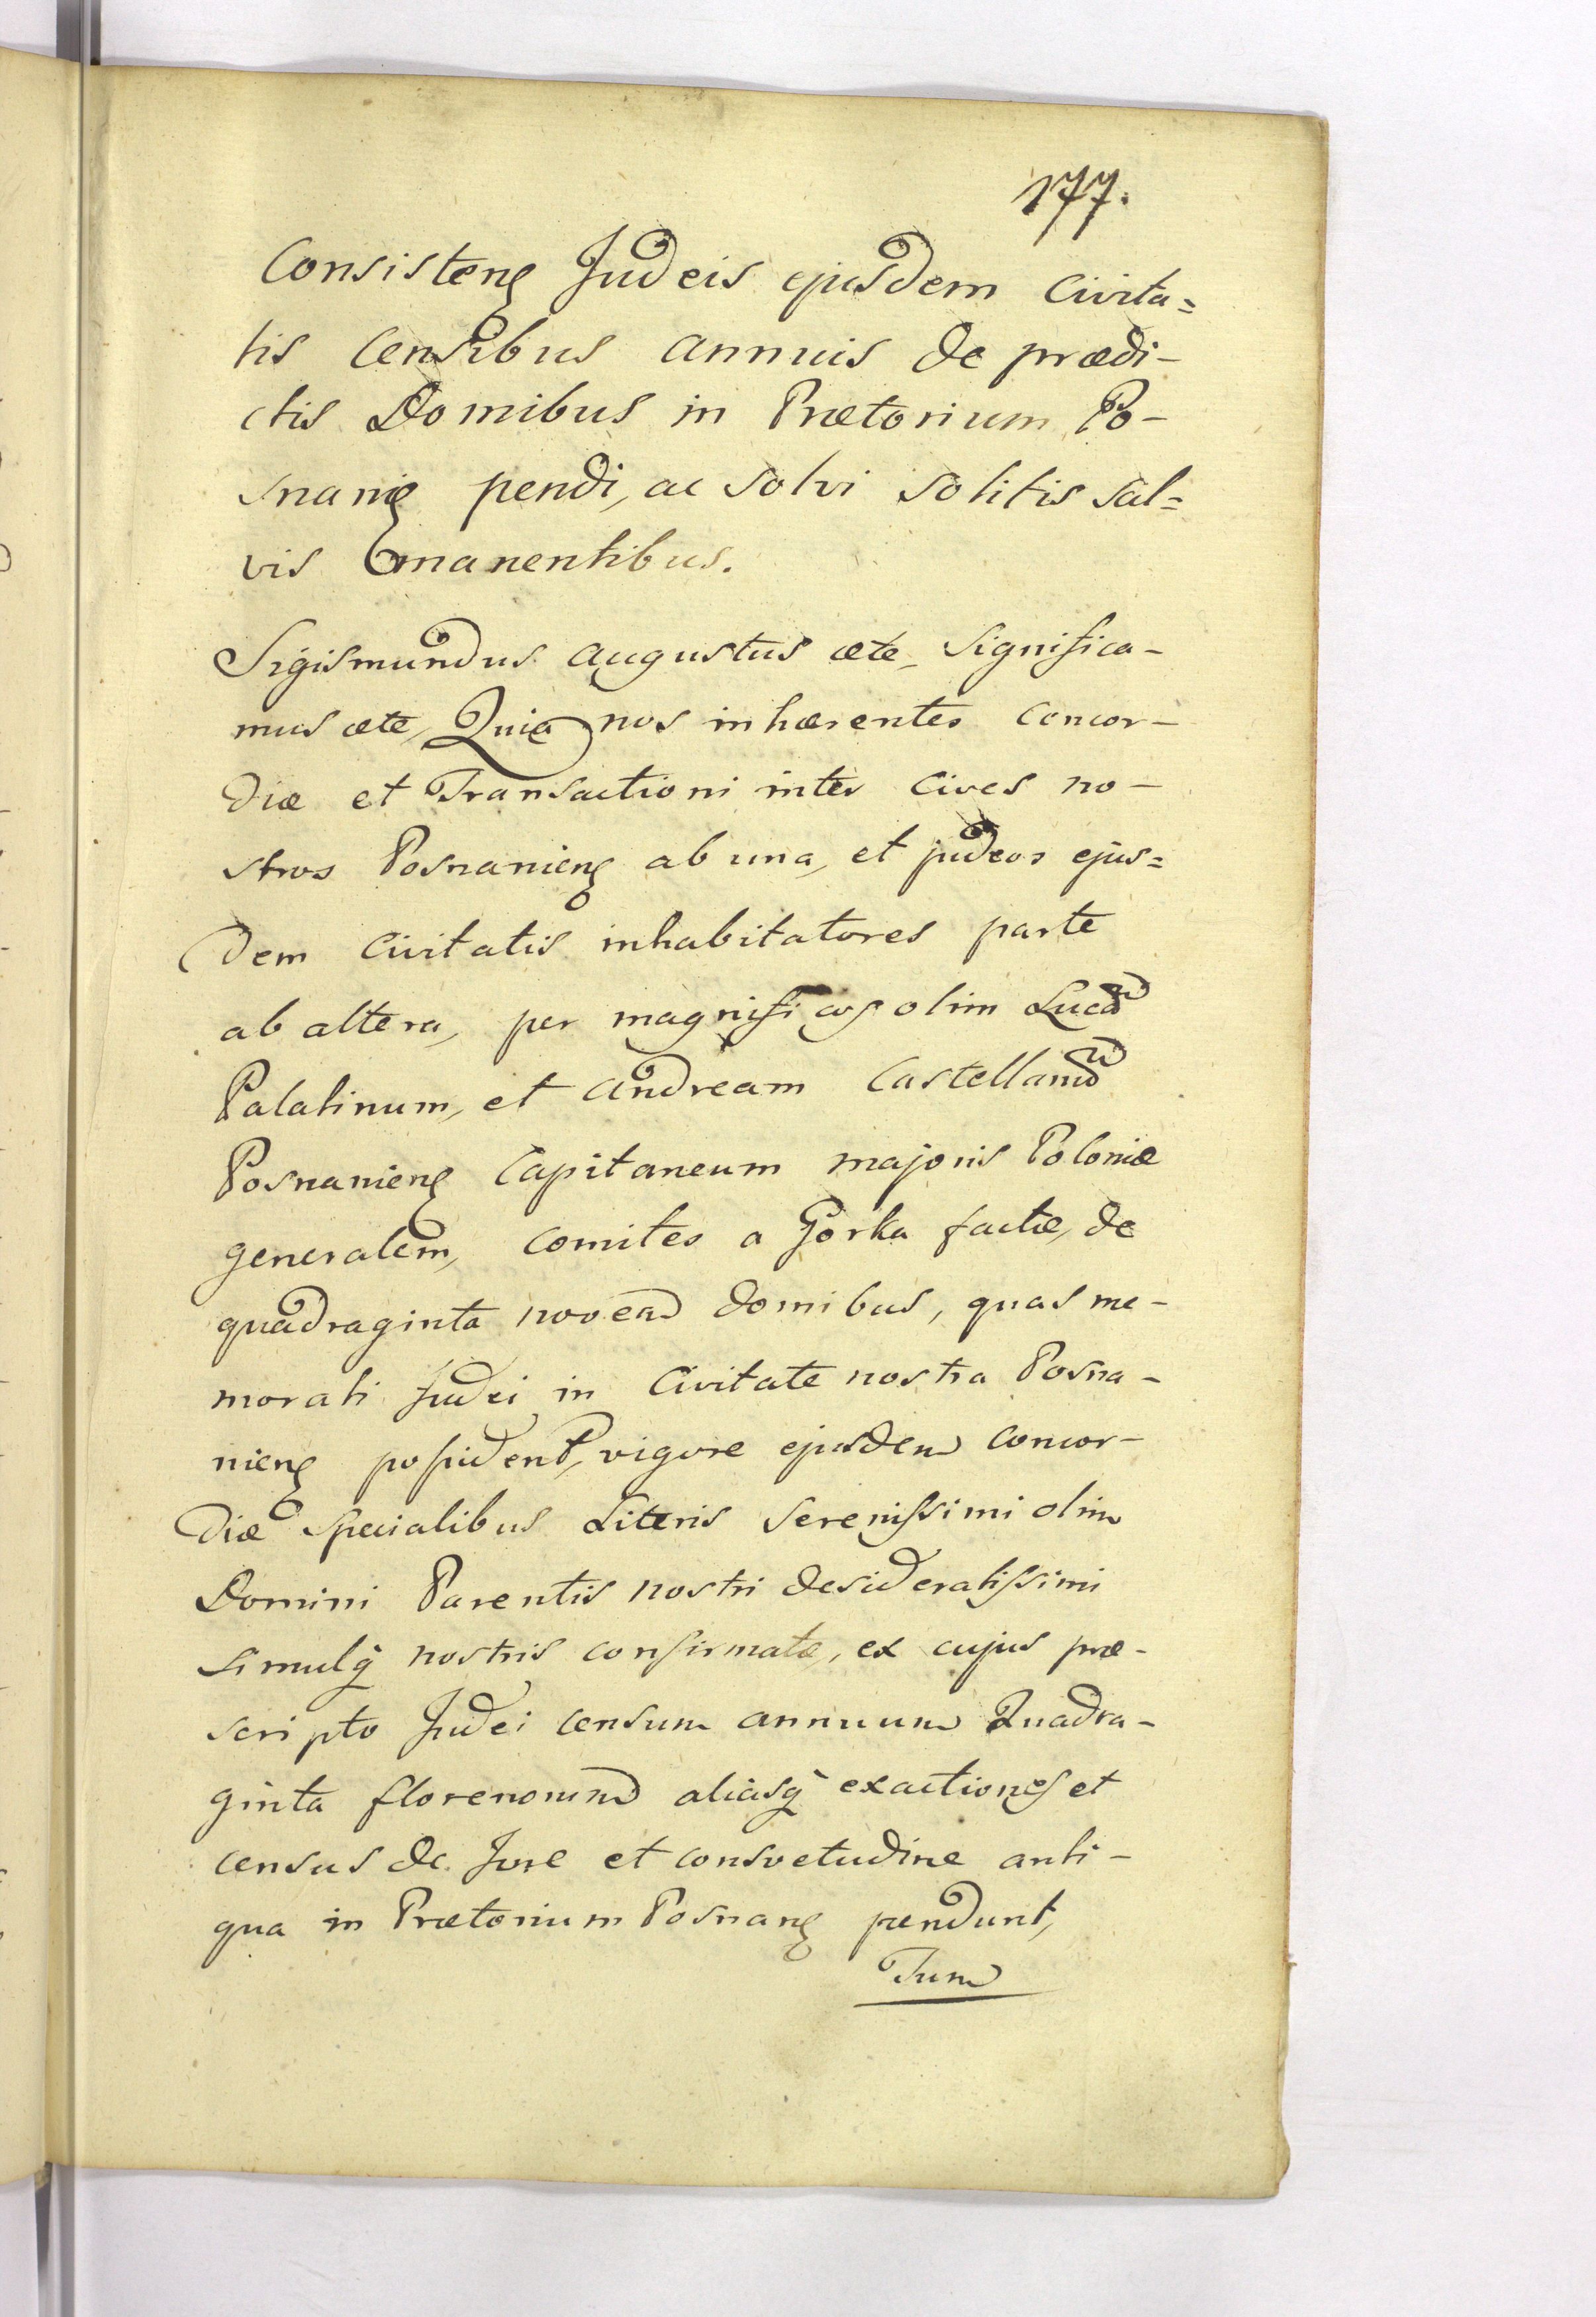 177.
Consisteng Judeis ejusdem Civita=
tis Censibus annuis de prædi-
ctis Domibus in Prætorium Po-
snanię pendi, ac solvi solitis sal=
vis manentibus.
Sigismundus Augustus ætc, Significa-
mus ætc, Quia nos inhærentes concor-
diæ et Transactioni inter Cives no-
stros Posnanieng ab una, et judeos ejus=
dem Civitatis inhabitatores parte
ab altera, per magnificos olim Lucam
Palatinum, et Andream Castellanum
Posnanieng Capitaneum majoris Poloniæ
generalem, Comites a Gorka factæ, de
quadraginta novem domibus, quas me-
morati Judei in Civitate nostra Posna-
nieng possident, vigore ejusdem concor-
diæ Specialibus Literis Serenissimi olim
Domini Parentis nostri desideratissimi
simulq nostris confirmatæ, ex cujus præ-
scripto Judei censum annuum Quadra-
ginta florenorum aliasq exactiones et
census de Jure et consvetudine anti-
qua in Prætorium Posnang pendunt,
Tum